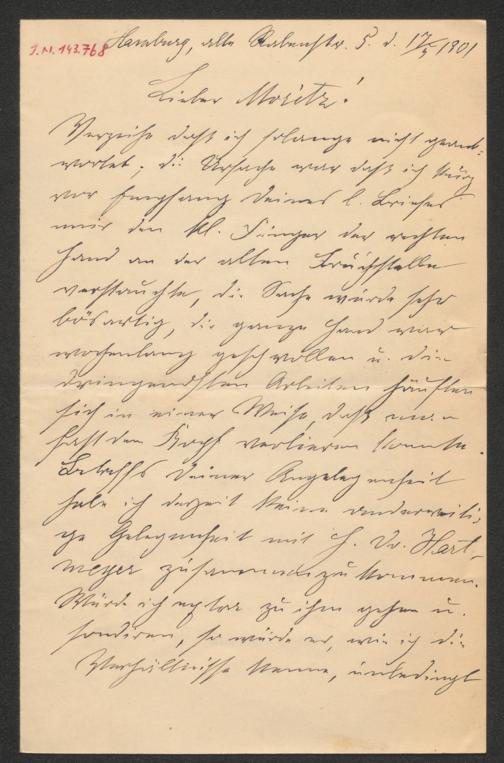 J.N. 143.768
Hamburg, alte Rabenstr. 5. d. 17/5 1901
Lieber Moritz!
Verzeihe daß ich solange nicht geant-
wortet; die Ursache war daß ich kurz
vor Empfang Deines l. Briefes
mir den kl. Finger der rechten
Hand an der alten Bruchstelle
verstauchte, die Sache wurde sehr
bösartig, die ganze Hand war
wochenlang geschwollen u. die
dringendsten Arbeiten häuften
sich in einer Weise, daß man
fast den Kopf verlieren konnte.
Betreffs Deiner Angelegenheit
habe ich derzeit keine anderweiti-
ge Gelegenheit mit H. Dr. Hart-
meyer zusammenzukommen.
Würde ich zu ihm gehen u.
sondiren, so würde er, wie ich die
Verhältnisse kenne, unbedingt